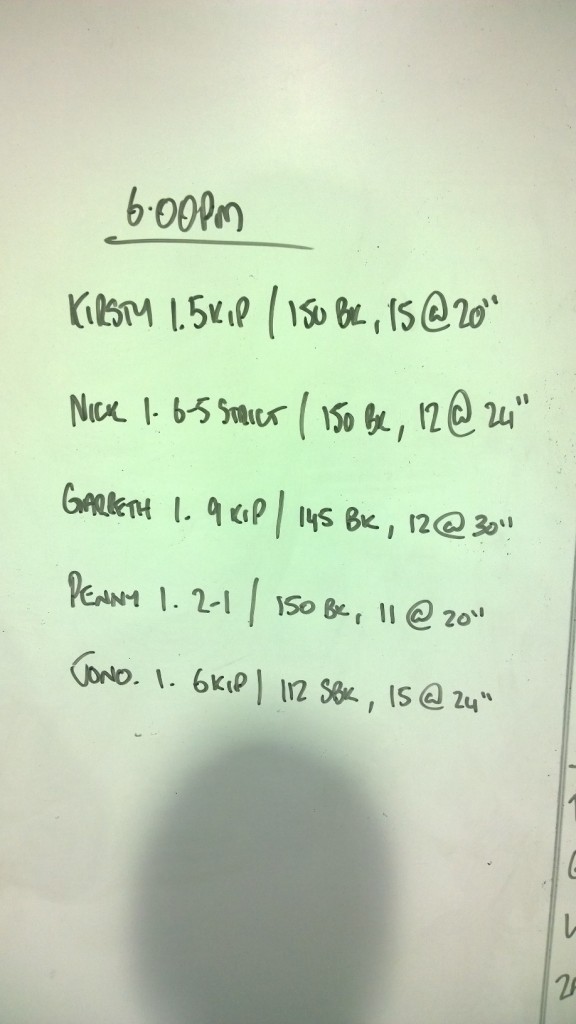 6.00PM
KIRSTY 1. 5 KIP / 150 BK, 15 @ 20"
NICK 1. 6-5 STRICT / 150 BK, 12 @ 24"
GARRETH 1. 9 KIP / 145 BK, 12 @ 30"
PENNY 1. 2-1 / 150 BK, 11 @ 20"
JONO. 1. 6 KIP / 112 SBK, 15 @ 24"